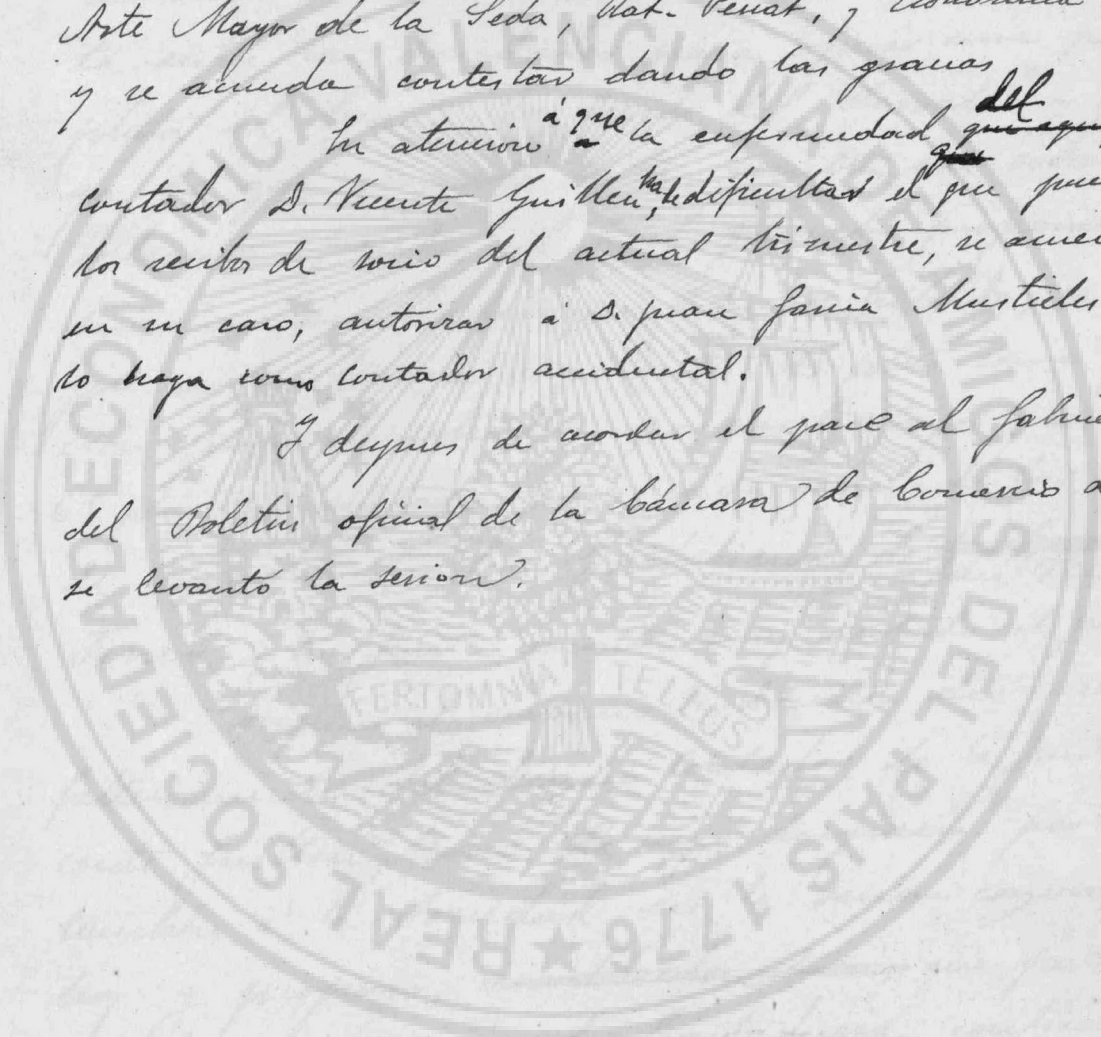 Arte Mayor de la Seda, Nat. Penat, y Económica
y se acuerda contestar dando las gracias
En atencion á que la enfermedad del
contador D. Vicente Guillen, ha dificultad el que
los recibos de socio del actual trimestre, se
en su caso, autorizar á D. Juan Garcia Mustieles
lo haga como contador accidental.
Y despues de acordar el pase al
del Boletin oficial de la Cámara de Comercio
se levanto la sesion.
REAL SOCIEDAD ECONOMICA VALENCIANA DE AMIGOS DEL PAIS 1776 ★
FERT OMNIA TELLUS